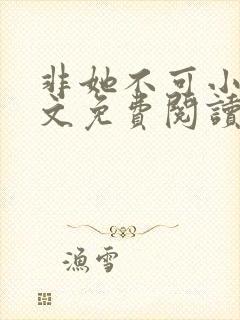 非她不可小
文免費閱讀
漁雪